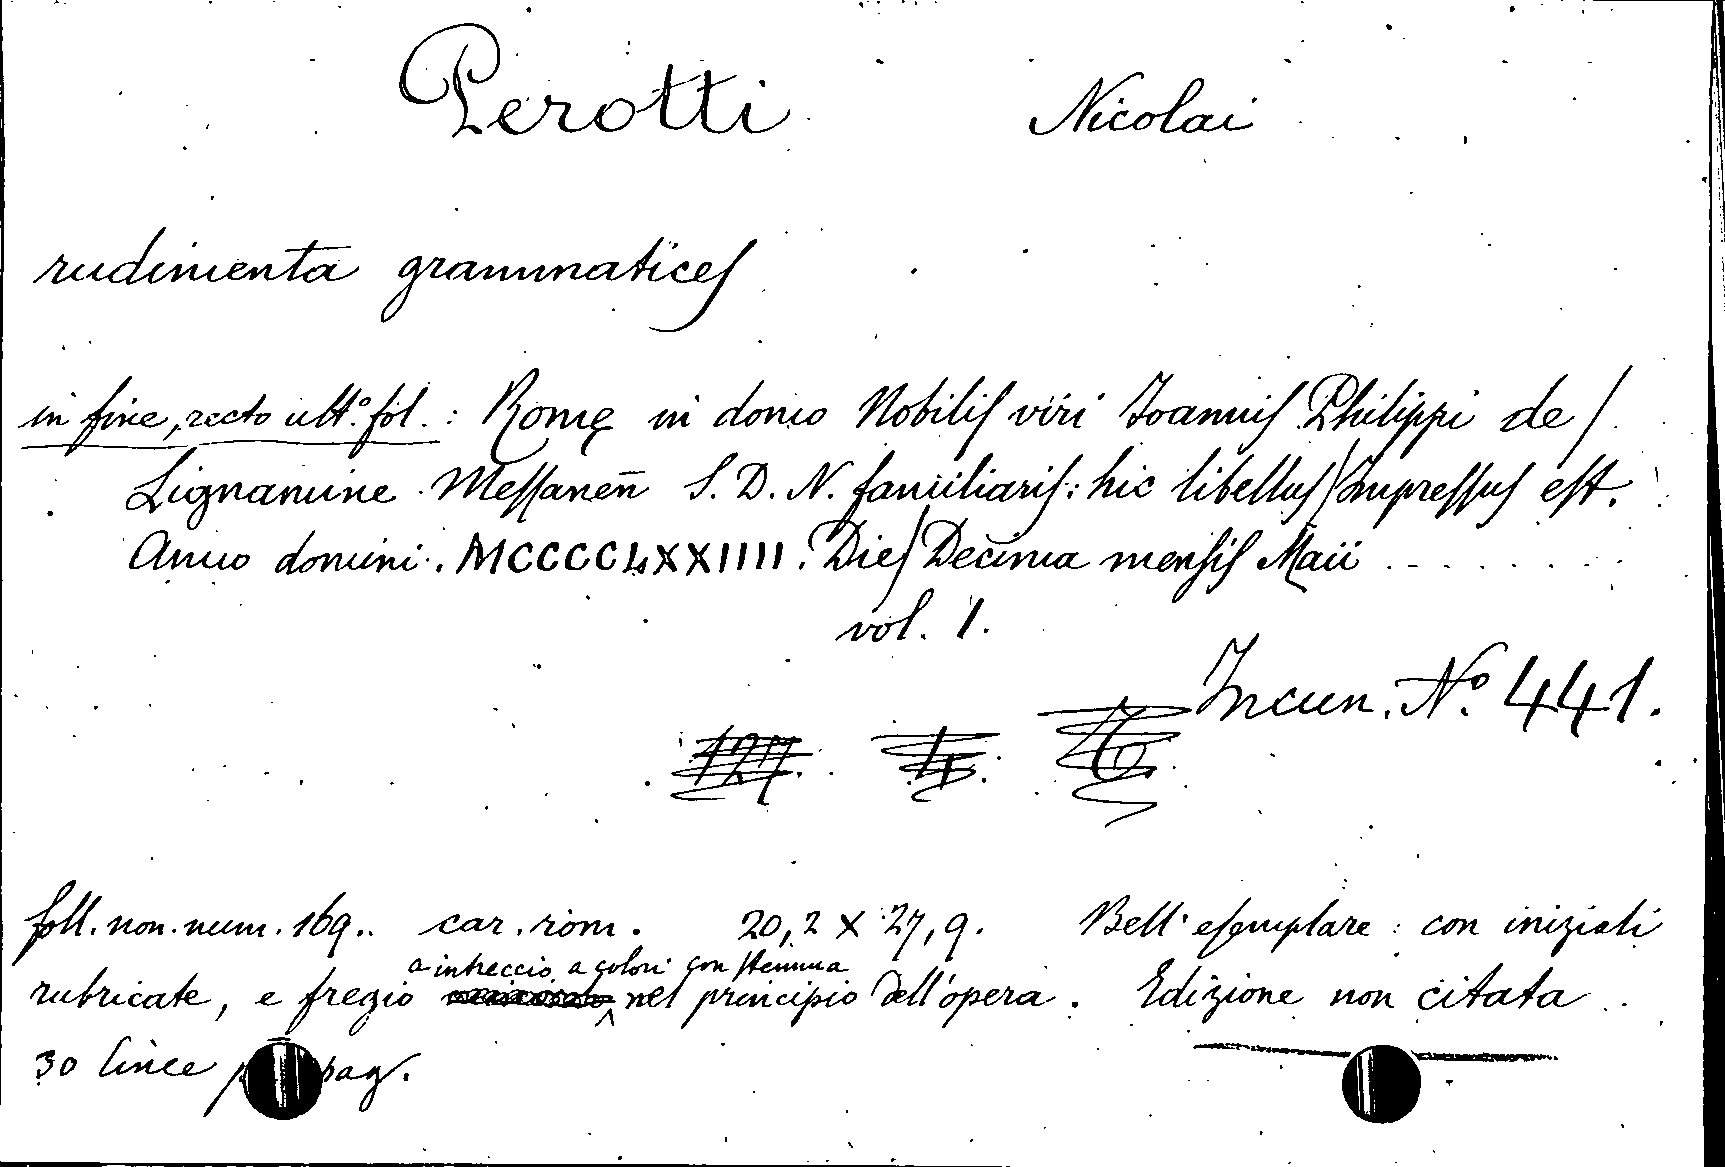 Perotti Nicolai
rudimenta grammatices
in fine, recto ult.° fol. : Romę in domo Nobilis viri Ioannis Philippi de /
Lignamine Messaneñ S. D. N. familiaris: hic libellus / Impressus est.
Anno domini. MCCCCLXXIIII. Dies / Decima mensis Maii . . . . . . .
vol. 1.
Incun. N.° 441.
foll. non. num. 169.. car. rom. 20,2 X 27,9. Bell' esemplare : con iniziali
a intreccio a colori con stemma
rubricate, e fregio nel principio dell'opera. Edizione non citata
30 linee pag.